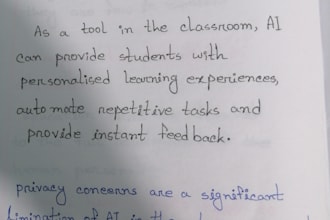 As a tool in the classroom, AI
can provide students with
personalised learning experiences,
automate repetitive tasks and
provide instant feedback.
privacy concerns are a significant
limination of AI in the